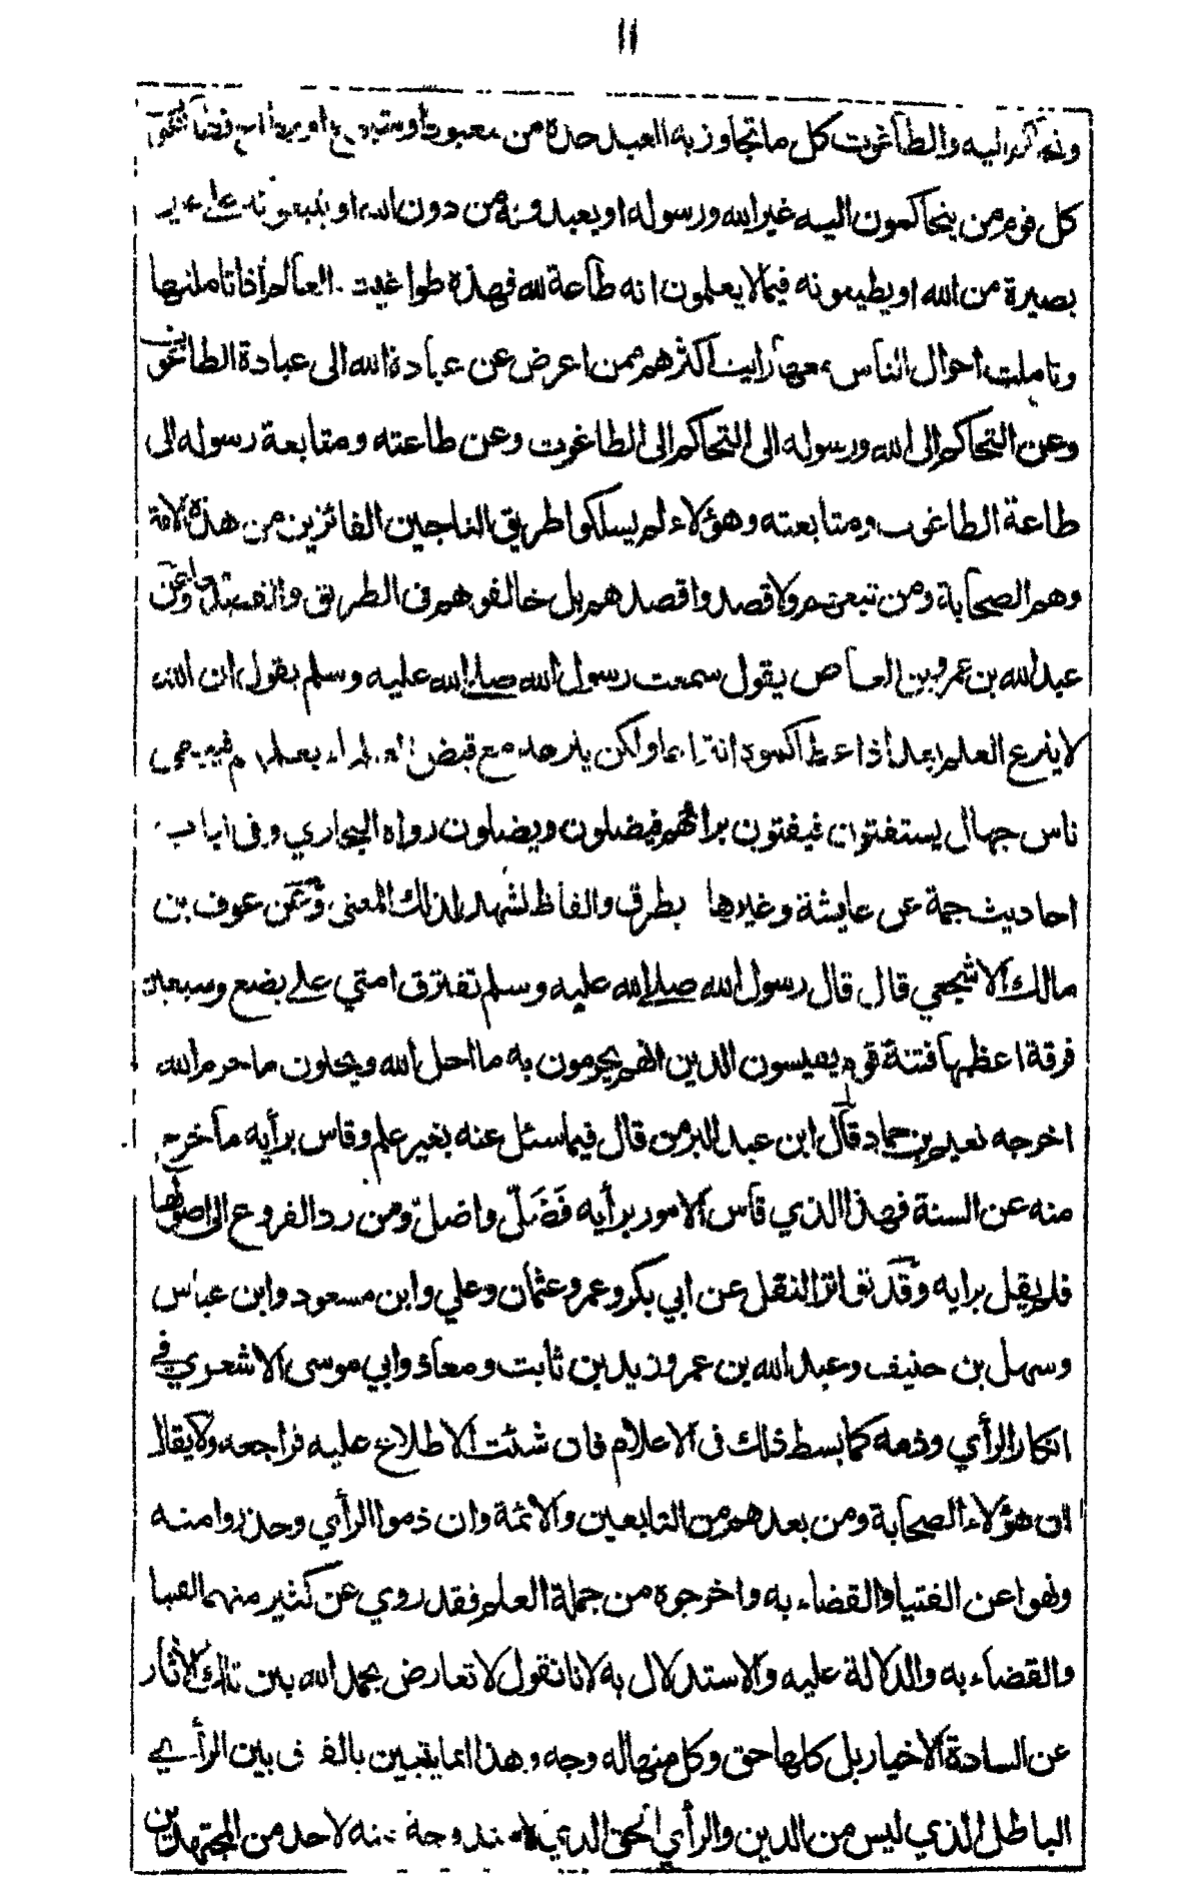 ١١
وتحاكم اليه والطاغوت كل ما تجاوز به العبد حده من معبود او متبوع او مطاع فطاغوت
كل قوم من يتحاكمون اليه غير الله ورسوله او يعبدونه من دون الله او يتبعونه على غير
بصيرة من الله او يطيعونه فيما لا يعلمون انه طاعة لله فهذه طواغيت العالم اذا تاملتها
وتاملت احوال الناس معها رايت اكثرهم ممن اعرض عن عبادة الله الى عبادة الطاغوت
وعن التحاكم الى الله ورسوله الى التحاكم الى الطاغوت وعن طاعته ومتابعة رسوله الى
طاعة الطاغوت ومتابعته وهؤلاء لم يسلكوا طريق الناجين الفائزين من هذه الامة
وهم الصحابة ومن تبعهم ولا قصدوا قصدهم بل خالفوهم فى الطريق والقصد معا وعن
عبد الله بن عمرو بن العاص يقول سمعت رسول الله صلى الله عليه وسلم يقول ان الله
لا ينزع العلم بعد اذ اعطاكموه انتزاعا ولكن ينزعه مع قبض العلماء بعلمهم فيبقى
ناس جهال يستفتون فيفتون برائهم فيضلون ويضلون رواه البخاري وفى الباب
احاديث جمة عن عايشة وغيرها بطرق والفاظ تشهد لذلك المعنى وعن عوف بن
مالك الاشجعي قال قال رسول الله صلى الله عليه وسلم تفترق امتي على بضع وسبعين
فرقة اعظمها فتنة قوم يقيسون الدين برائهم يحرمون به ما احل الله ويحلون ما حرم الله
اخرجه نعيم بن حماد قال ابن عبد البر من قال فيما سئل عنه بغير علم وقاس برأيه ما خرج
منه عن السنة فهذا الذي قاس الامور برأيه فَضَلّ واضلّ ومن رد الفروع الى اصولها
فلم يقل برايه وقد تواتر النقل عن ابي بكر وعمر وعثمان وعلي وابن مسعود وابن عباس
وسهل بن حنيف وعبد الله بن عمر وزيد بن ثابت ومعاذ وابي موسى الاشعري في
انكار الرأي وذمه كما بسط ذلك فى الاعلام فان شئت الاطلاع عليه فراجعه ولا يقال
ان هؤلاء الصحابة ومن بعدهم من التابعين والائمة وان ذموا الرأي وحذروا منه
ونهوا عن الفتيا والقضاء به واخرجوه من جملة العلم فقد روي عن كثير منهم الفتيا
والقضاء به والدلالة عليه والاستدلال به لانا نقول لا تعارض بحمد الله بين تلك الاثار
عن السادة الاخيار بل كلها حق وكل منها له وجه وهذا انما يتبين بالفرق بين الرأي
الباطل الذي ليس من الدين والرأي الحق الذي لا مندوحة عنه لاحد من المجتهدين